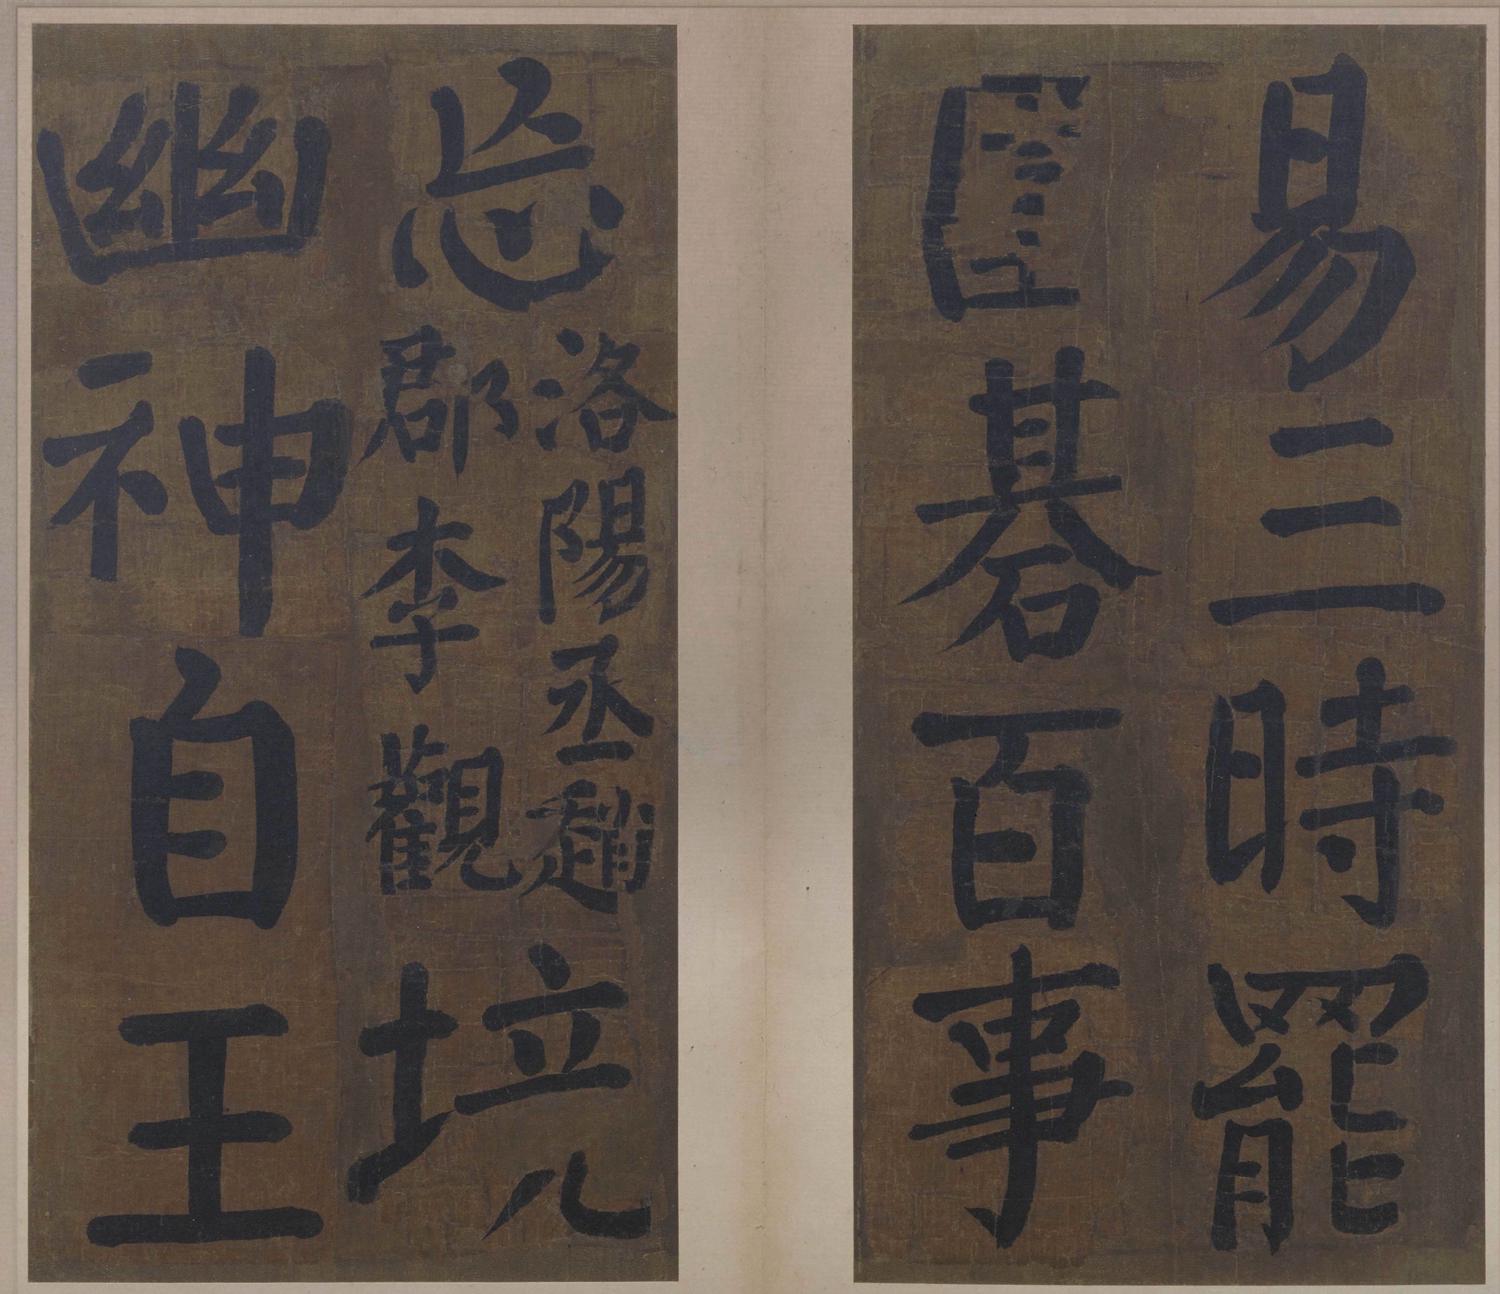 易三時罷
圍碁百事
忘
洛陽丞趙
郡李觀
坑
幽神自王